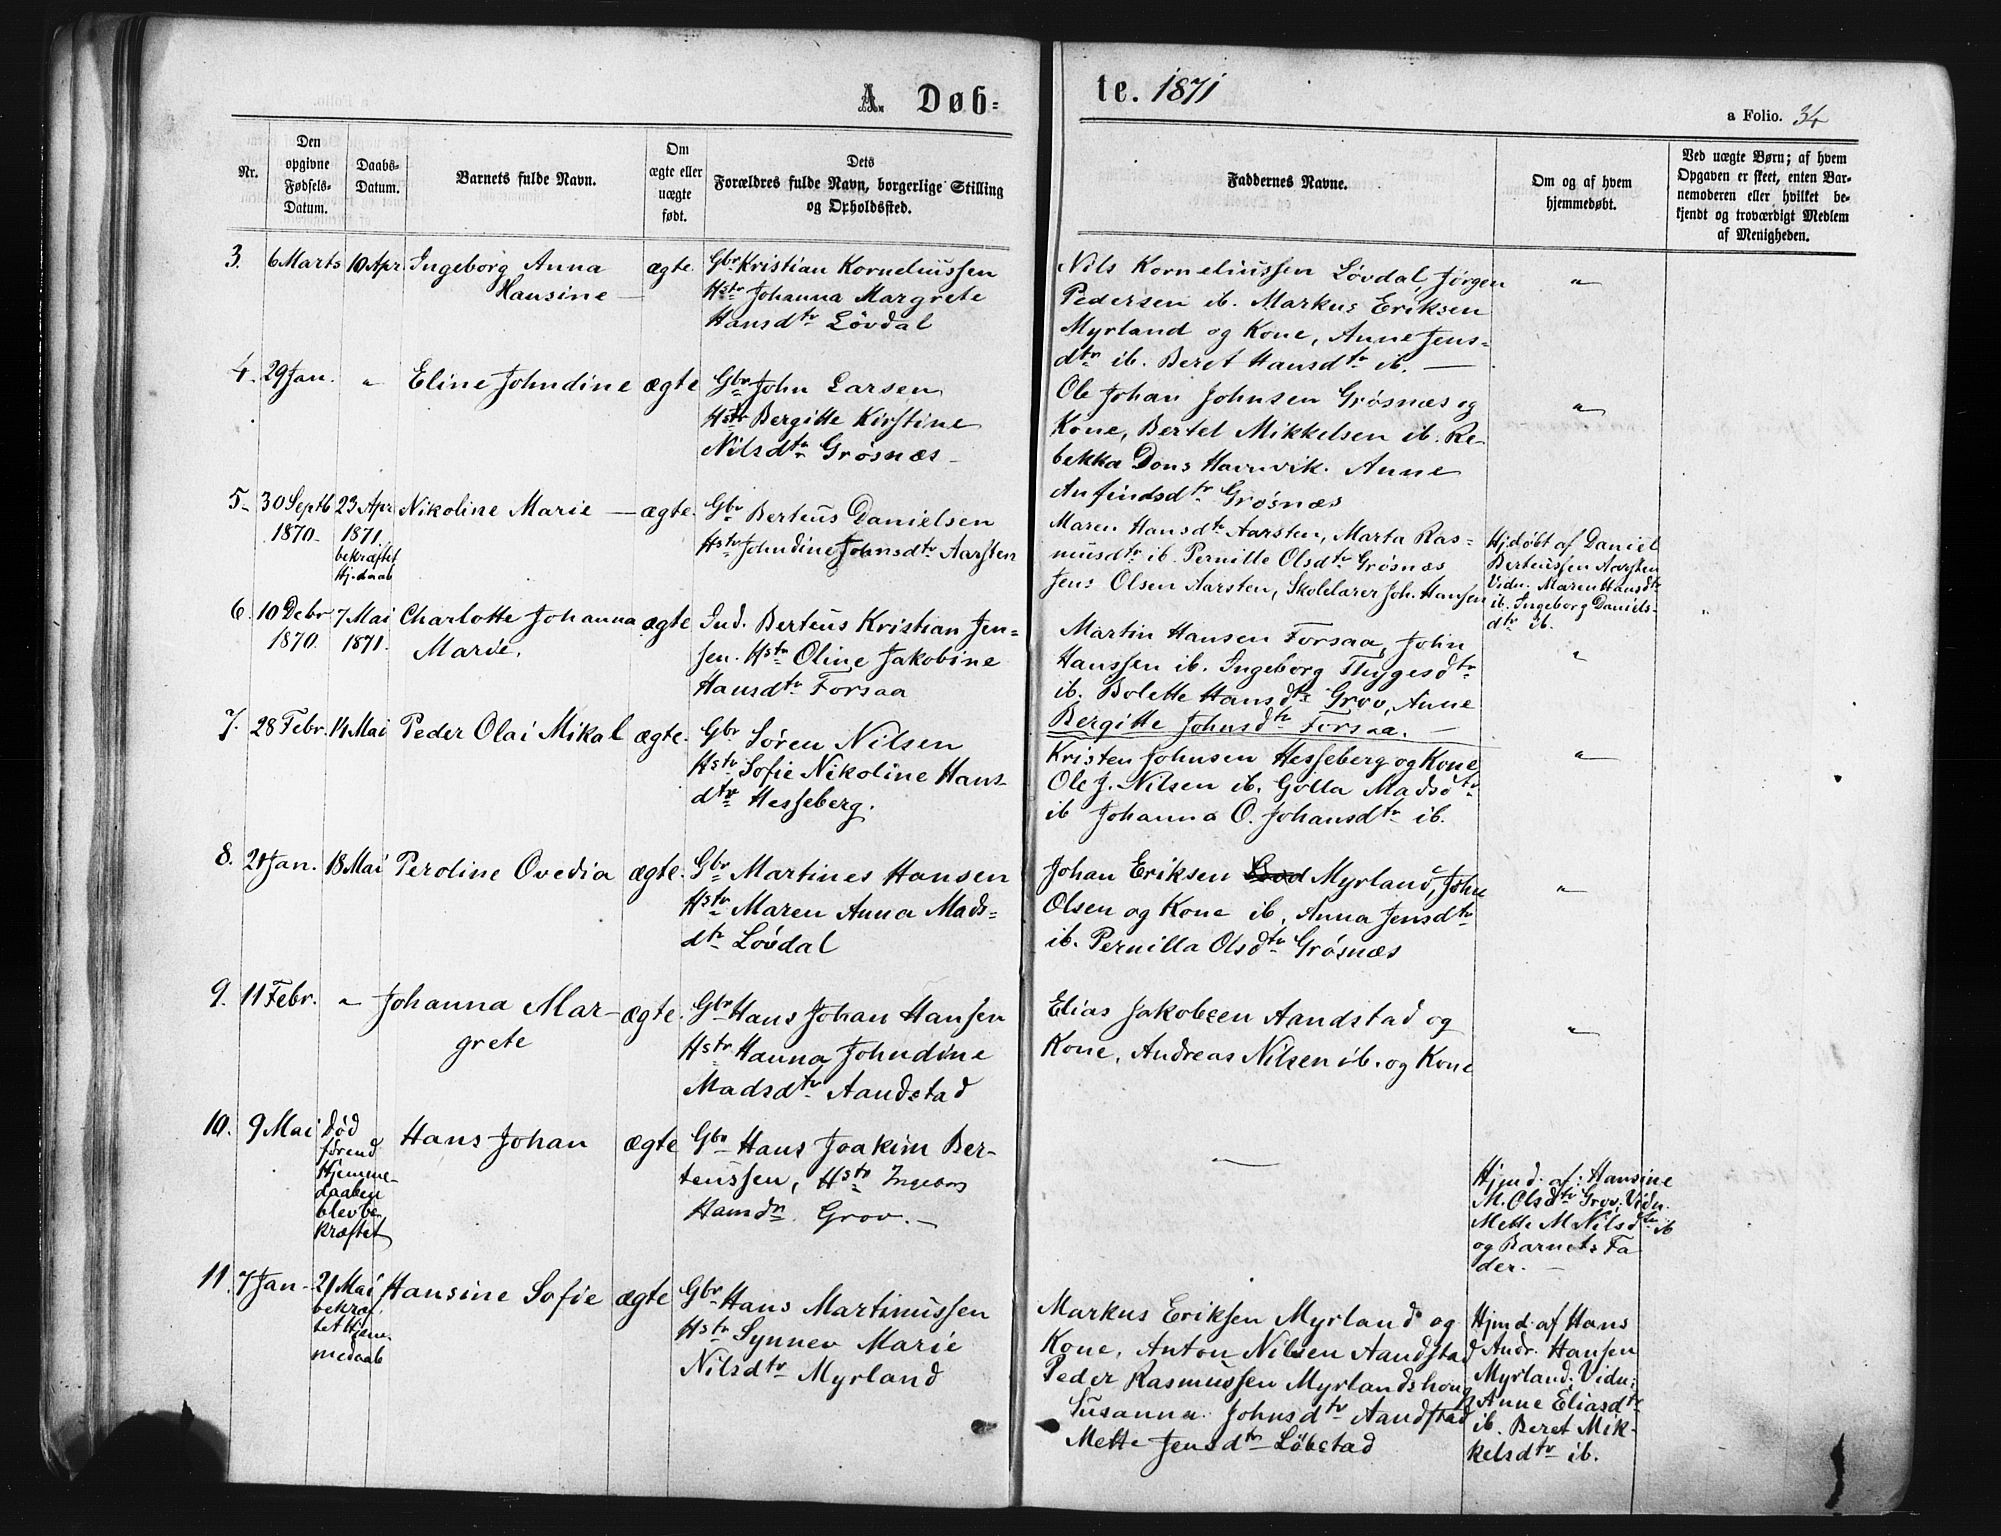 A. Døb-
te. 1871
a Folio. 34
Nr.
Den opgivne Fødsels-Datum.
Daabs-Datum.
Barnets fulde Navn.
Om ægte eller uægte født.
Dets Forældres fulde Navn, borgerlige Stilling og Opholdssted.
Faddernes Navne.
Om og af hvem hjemmedøbt.
Ved uægte Børn; af hvem Opgaven er skeet, enten Barnemoderen eller hvilket bekjendt og troværdigt Medlem af Menigheden.
3. 6 Marts 10 Apr. Ingeborg Anna
Hansine —
ægte
Gbr Kristian Korneliussen
Hstr Johanna Margrete
Hansdtr Løvdal
Nils Korneliussen Løvdal, Jørgen
Pedersen ib. Markus Eriksen
Myrland og Kone, Anne Jens=
dtr ib. Beret Hansdtr ib. —
"
4. 29 Jan. " Eline Johndine ægte
Gbr John Larsen
Hstr Bergitte Kirstine
Nilsdtr Grøsnæs —
Ole Johan Johnsen Grøsnæs og
Kone, Bertel Mikkelsen ib. Re-
bekka Dons Havnvik. Anne
Anfindsdtr Grøsnæs
"
5. 30 Septb 1870. 23 Apr 1871.
bekræftet
Hj.daab
Nikoline Marie — ægte.
Gbr Berteus Danielsen
Hstr Johndine Johnsdtr Aarsten
Maren Hansdtr Aarsten, Marta Ras=
musdtr ib. Pernille Olsdtr Grøsnæs
Jens Olsen Aarsten, Skolelærer Joh. Hansen
Hj.døbt af Daniel
Berteussen Aarsten
Vidn. Maren Hansdtr
ib. Ingeborg Daniels-
dtr ib.
6. 10 Debr 1870. 7 Mai 1871. Charlotte Johanna
Marie.
ægte
Ind. Berteus Kristian Jen=
sen. Hstr Oline Jakobine
Hansdtr Forsaa
Martin Hansen Forsaa, John
Hanssen ib. Ingeborg Thygesdtr
ib. Bolette Hansdtr Grov, Anne
Bergitte Johnsdtr Forsaa. —
"
7. 28 Febr. 14 Mai Peder Olai Mikal ægte.
Gbr Søren Nilsen
Hstr Sofie Nikoline Hans-
dtr Hesseberg.
Kristen Johnsen Hesseberg og Kone
Ole J. Nilsen ib. Golla Madsdtr
ib Johanna O. Johansdtr ib.
"
8. 21 Jan. 18 Mai Peroline Ovedia ægte.
Gbr Martines Hansen
Hstr Maren Anna Mads=
dtr Løvdal
Johan Eriksen Myrland, John
Olsen og Kone ib, Anna Jensdtr
ib. Pernilla Olsdtr Grøsnæs
"
9. 11 Febr. " Johanna Mar-
grete
ægte.
Gbr Hans Johan Hansen
Hstr Hanna Johndine
Madsdtr Aandstad
Elias Jakobsen Aandstad og
Kone, Andreas Nilsen ib. og Kone
"
10. 9 Mai Død
førend
Hjemme-
daaben
blev be-
kræftet
Hans Johan ægte
Gbr Hans Joakim Ber-
teussen, Hstr Ingeborg
Hansdtr Grov. —
—
Hjmd. af: Hansine
M. Olsdtr Grov; Vidn.
Mette M Nilsdtr ib
og Barnets Fa
der. —
11. 7 Jan — 21 Mai
bekræf.
tet Hjem-
medaab
Hansine Sofie ægte
Gbr Hans Martinussen
Hstr Synnev Marie
Nilsdtr Myrland
Markus Eriksen Myrland og
Kone, Anton Nilsen Aandstad
Peder Rasmussen Myrlandshoug
Susanna Johnsdtr Aandstad
Mette Jensdtr Løbstad
Hjmd. af Hans
Andr. Hansen
Myrland. Vidn:
Anne Eliasdtr
ib. Beret Mik-
kelsdtr ib.